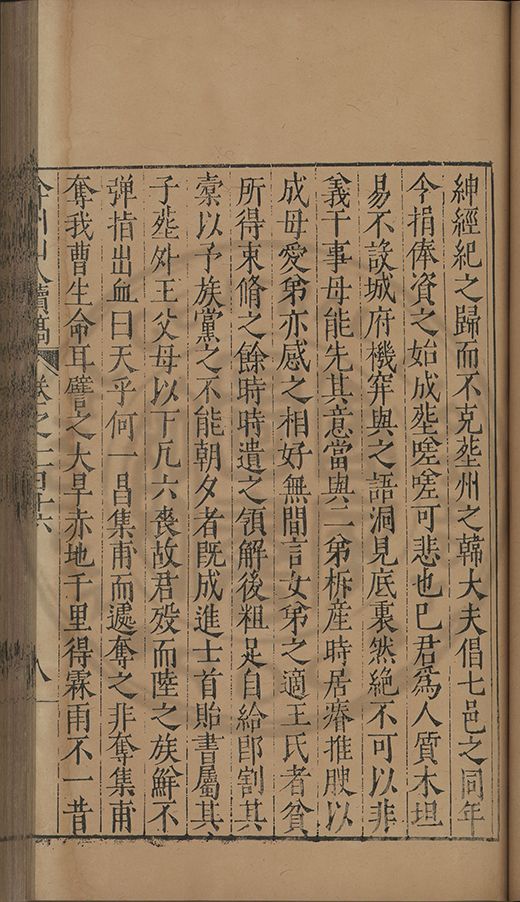 紳經紀之歸而不克塟州之韓大夫倡七邑之同年
今捐俸貲之始成塟嗟嗟可悲也已君爲人質木坦
易不設城府機穽與之語洞見底裏然絕不可以非
義干事母能先其意當與二弟柝產時居瘠推腴以
成母愛弟亦感之相好無間言女弟之適王氏者貧
所得束脩之餘時時遺之領解後粗足自給卽割其
槖以予族黨之不能朝夕者旣成進士首貽書屬其
子塟外王父母以下凡六喪故君歿而陸之族鮮不
彈指出血曰天乎何一昌集甫而遽奪之非奪集甫
奪我曹生命耳譬之大旱赤地千里得霖雨不一昔
弇州山人續稿 卷之一百十六 八